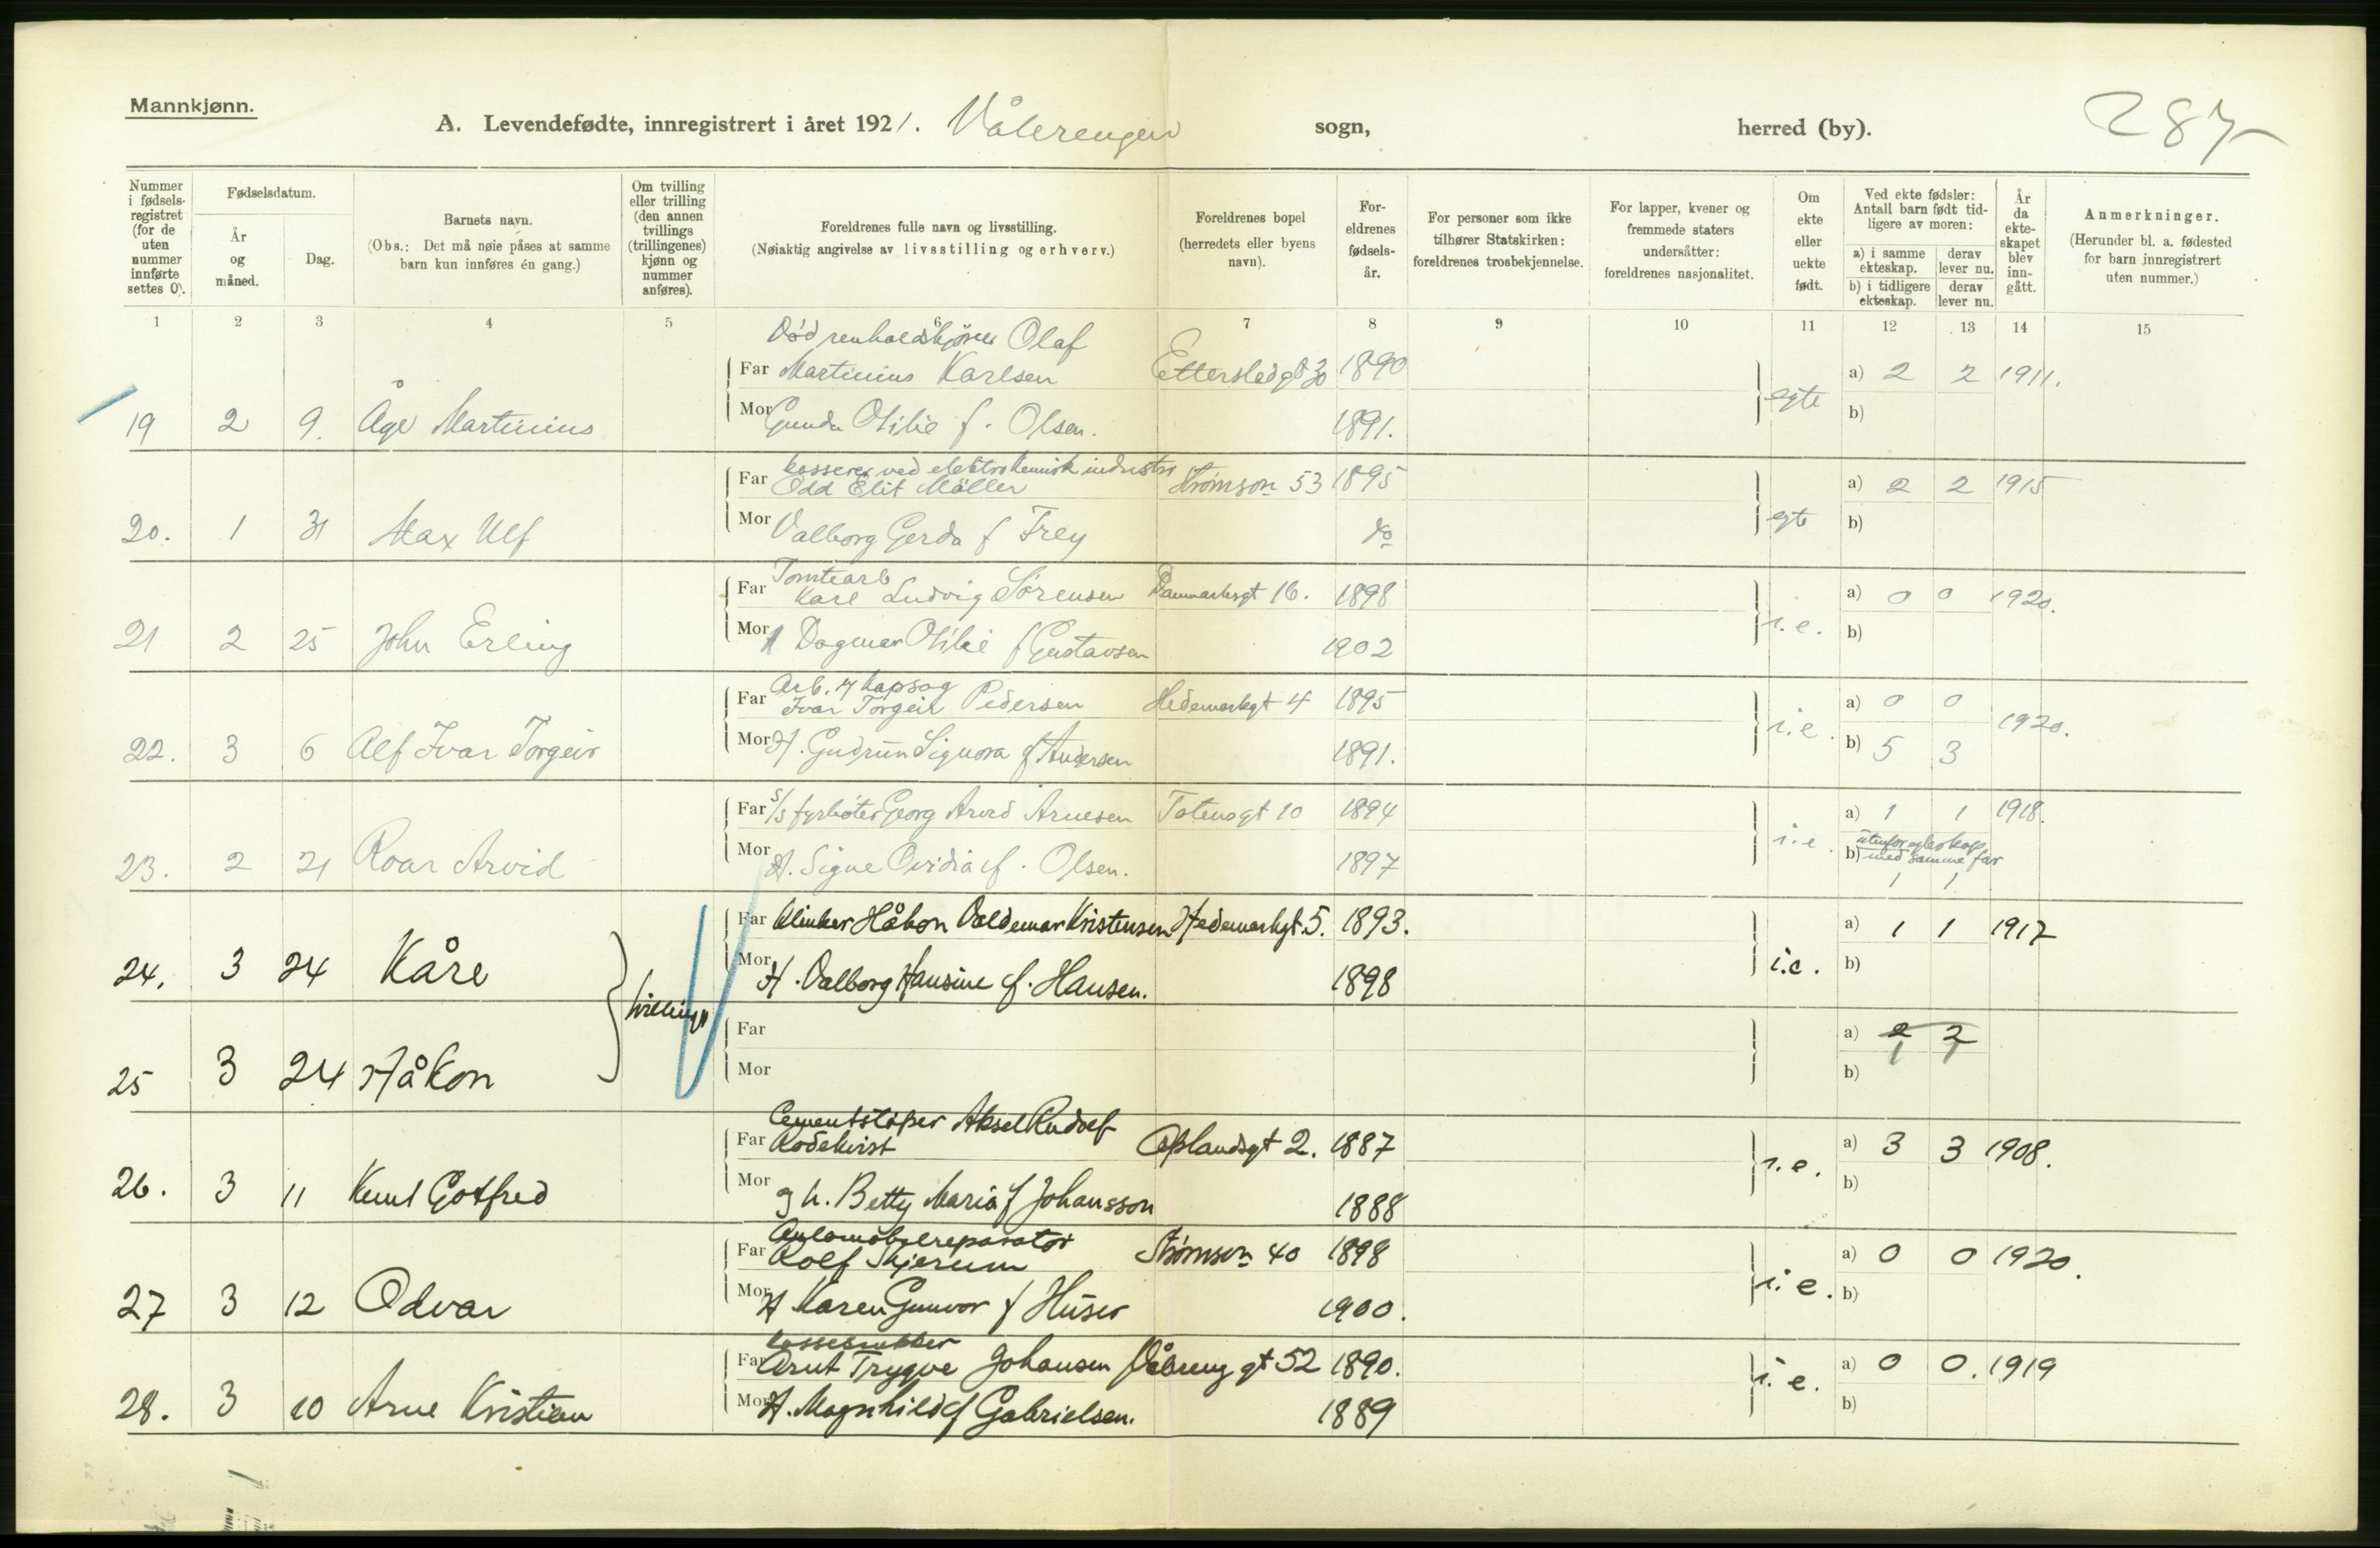 Mannkjønn.
A. Levendefødte, innregistrert i året 1921. Vålerengen sogn, herred (by). 287
Nummer i fødsels-registret (for de uten nummer innførte settes 0).
Fødselsdatum.
År og måned.
Dag.
Barnets navn.
(Obs.: Det må nøie påses at samme barn kun innføres én gang.)
Om tvilling eller trilling (den annen tvillings (trillingenes) kjønn og nummer anføres).
Foreldrenes fulle navn og livsstilling.
(Nøiaktig angivelse av livsstilling og erhverv.)
Foreldrenes bopel (herredets eller byens navn).
For-eldrenes fødsels-år.
For personer som ikke tilhører Statskirken: foreldrenes trosbekjennelse.
For lapper, kvener og fremmede staters undersåtter: foreldrenes nasjonalitet.
Om ekte eller uekte født.
Ved ekte fødsler: Antall barn født tid-ligere av moren:
a) i samme ekteskap.
derav lever nu.
b) i tidligere ekteskap.
derav lever nu.
År da ekte-skapet blev inn-gått.
Anmerkninger.
(Herunder bl. a. fødested for barn innregistrert uten nummer.)
1 2 3 4 5 6 7 8 9 10 11 12 13 14 15
Død renholdskjører Olaf
Far Martinius Karlsen 1890 a) 2 2 1911.
19 2 9. Åge Martinius Mor Gunda Otilie f. Olsen. 1891. egte b)
kasserer ved elektrokemisk industri
Far Odd Elit Möller Strømsvn 53 1895 a) 2 2 1915
20. 1 31 Max Ulf Mor Valborg Gerda f Frey do egte b)
Tomtearb
Far Karl Ludvig Sörensen Danmarksgt 16. 1898 a) 0 0 1920.
21 2 25 John Erling Mor H Dagmar Otilie f Gustavsen 1902 i.e. b)
Arb. v kapsag
Far Ivar Torgeir Pedersen Hedemarkgt 4 1895 a) 0 0 1920.
22. 3 6 Alf Ivar Torgeir Mor H. Gudrun Signora f Andersen 1891. i.e. b) 5 3
Far S/S fyrbøter Georg Arvid Arnesen Totensgt 10 1894 a) 1 1 1918.
23. 2 21 Roar Arvid Mor H. Signe Ovidia f. Olsen. 1897 i.e. b) utenfor egteskap med samme far 1 1
Far Klinker Håkon Valdemar Kristensen Hedemarkgt. 5. 1893. a) 1 1 1917
24. 3 24 Kåre Mor H. Valborg Hansine f. Hansen. 1898 i.e. b)
tvillinger
Far a) 2 2
1 1
25 3 24 Håkon Mor b)
Cementstøper Aksel Rudolf
Far Rodekvist Oplandsgt 2. 1887 a) 3 3 1908.
26. 3 11 Knut Gotfred Mor g h. Betty Maria f Johansson 1888 i.e. b)
Automobilreparatør
Far Rolf Skjerum Strømsvn 40 1898 a) 0 0 1920.
27 3 12 Odvar Mor H Karen Gunvor f Huser 1900. i.e. b)
Far Arnt Trygve Johansen Vålreng gt 52 1890. a) 0 0. 1919
28. 3 10 Arne Kristian Mor H. Magnhild f Gabrielsen. 1889 i.e. b)